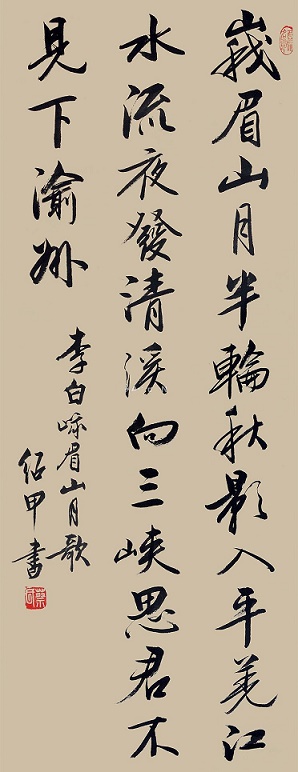 峩眉山月半輪秋影入平羌江
水流夜發清溪向三峽思君不
見下渝州
李白峩眉山月歌
紹甲書